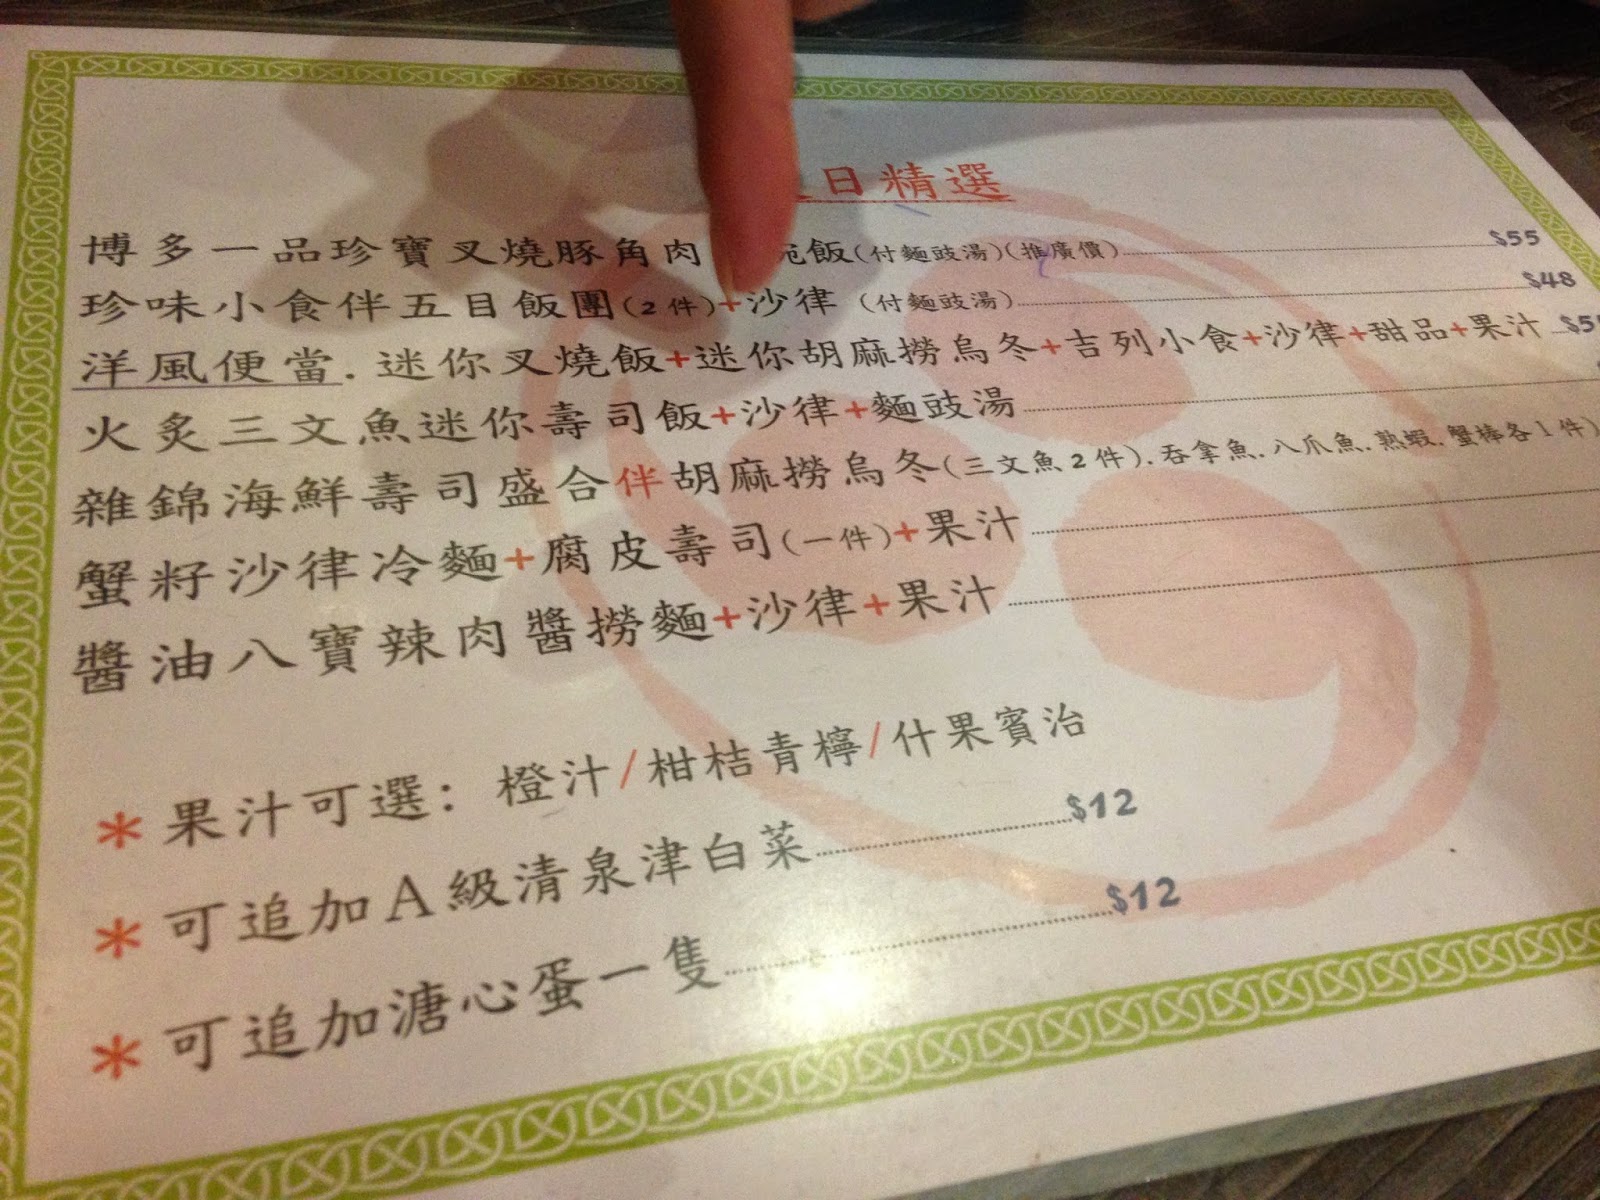 日精選
博多一品珍寶叉燒豚角肉 飯(付麵豉湯)(推廣價) $55
珍味小食伴五目飯團(2件)+沙律 (付麵豉湯) $48
洋風便當. 迷你叉燒飯+迷你胡麻撈烏冬+吉列小食+沙律+甜品+果汁
火炙三文魚迷你壽司飯+沙律+麵豉湯
雜錦海鮮壽司盛合伴胡麻撈烏冬(三文魚2件). 吞拿魚. 八爪魚. 熟蝦. 蟹棒各1件)
蟹籽沙律冷麵+腐皮壽司(一件)+果汁
醬油八寶辣肉醬撈麵+沙律+果汁
* 果汁可選: 橙汁/柑桔青檸/什果賓治
* 可追加A級清泉津白菜 $12
* 可追加溏心蛋一隻 $12